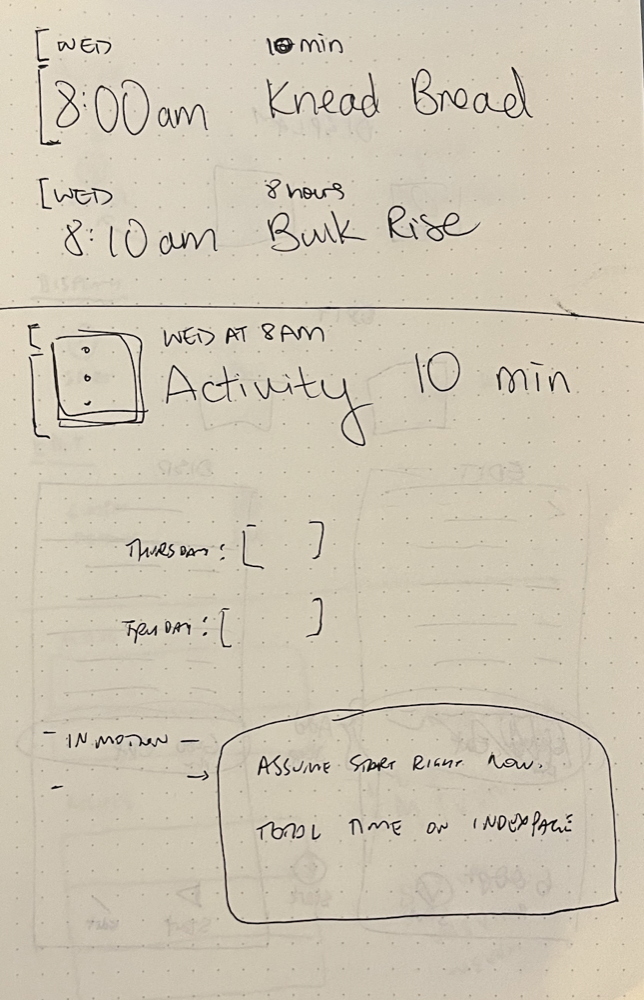 [WED 10 min
[8:00am Knead Bread
[WED 8 hours
8:10am Bulk Rise
WED AT 8AM
Activity 10 min
THURSDAY: [ ]
FRIDAY: [ ]
- IN MOTION -
→ ASSUME START RIGHT NOW.
TOTAL TIME ON INDEXPAGE